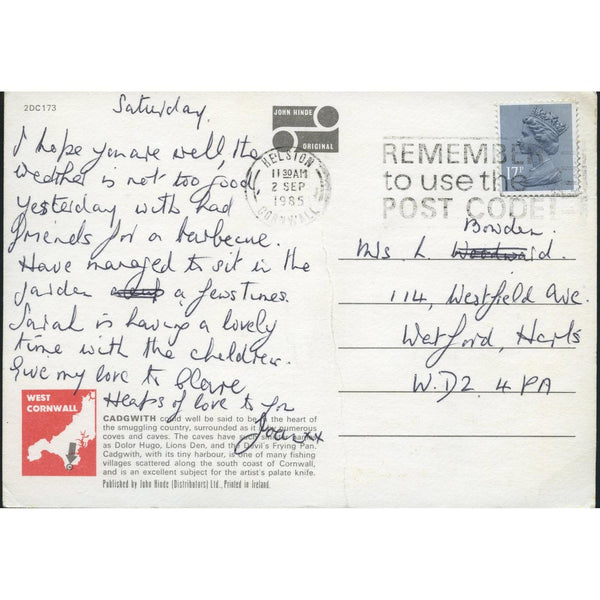 2DC173
Saturday.
I hope you are well, the
weather is not too good,
yesterday with had
friends for a barbecue.
Have managed to sit in the
garden a few times.
Sarah is having a lovely
time with the children.
Give my love to Clare
Heaps of love to you
Joan xx
JOHN HINDE
ORIGINAL
HELSTON
11 30 AM
2 SEP
1985
CORNWALL
REMEMBER
to use the
POST CODE!
17P
Bowden.
Mrs L. Woodward.
114, Westfield Ave.
Watford, Herts
W.D2. 4PA
WEST
CORNWALL
CADGWITH could well be said to be in the heart of
the smuggling country, surrounded as it is by numerous
coves and caves. The caves have such names
as Dolor Hugo, Lions Den, and the Devil's Frying Pan.
Cadgwith, with its tiny harbour, is one of many fishing
villages scattered along the south coast of Cornwall,
and is an excellent subject for the artist's palate knife.
Published by John Hinde (Distributors) Ltd., Printed in Ireland.